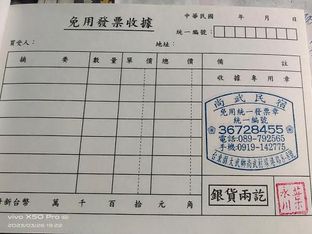 免用發票收據
中華民國 年 月 日
統一編號:
買受人: 地址:
摘要 數量 單價 總價 備註
收據專用章
尚武民宿
免用統一發票章
統一編號
36728455
電話:089-792565
手機:0919-142775
台東縣大武鄉尚武村
新台幣 萬 千 百 拾 元 角
銀貨兩訖
葉永川
vivo X50 Pro
2023/03/26 11:25